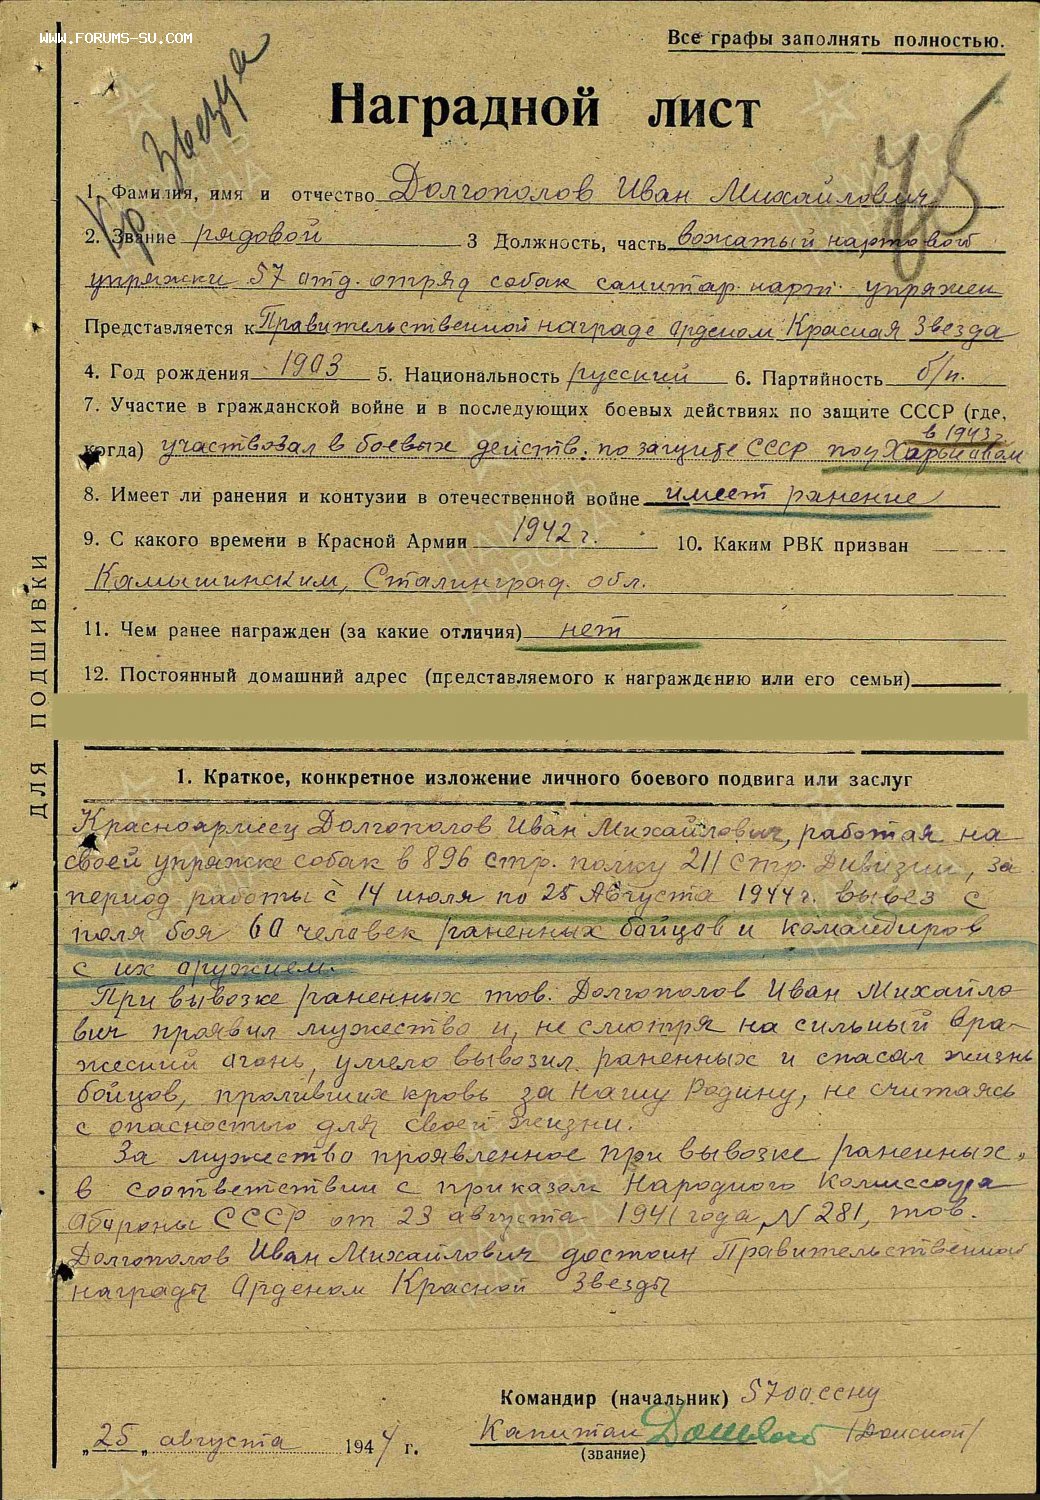 WWW.FORUMS-SU.COM
Все графы заполнять полностью.
Кр Звезда
Наградной лист
1. Фамилия, имя и отчество Долгополов Иван Михайлович
2. Звание рядовой 3 Должность, часть вожатый нартовой
упряжки 57 отд. отряд собак санитар. нарт. упряжек
Представляется к Правительственной награде орденом Красная Звезда
4. Год рождения 1903 5. Национальность русский 6. Партийность б/п.
7. Участие в гражданской войне и в последующих боевых действиях по защите СССР (где,
в 1943г
когда) участвовал в боевых действ. по защите СССР под Харьковом
8. Имеет ли ранения и контузии в отечественной войне имеет ранение
9. С какого времени в Красной Армии 1942 г. 10. Каким РВК призван
Камышинским, Сталинград. обл.
11. Чем ранее награжден (за какие отличия) нет
12. Постоянный домашний адрес (представляемого к награждению или его семьи)
ДЛЯ ПОДШИВКИ
1. Краткое, конкретное изложение личного боевого подвига или заслуг
Красноармеец Долгополов Иван Михайлович, работая на
своей упряжке собак в 896 стр. полку 211 стр. Дивизии, за
период работы с 14 июля по 25 Августа 1944г. вывез с
поля боя 60 человек раненных бойцов и командиров
с их оружием.
При вывозке раненных тов. Долгополов Иван Михайло-
вич проявил мужество и, не смотря на сильный вра-
жеский огонь, умело вывозил раненных и спасал жизнь
бойцов, проливших кровь за Нашу Родину, не считаясь
с опасностью для своей жизни.
За мужество проявленное при вывозке раненных,
в соответствии с приказом Народного Комиссара
Обороны СССР от 23 августа 1941 года, N 281, тов.
Долгополов Иван Михайлович достоин Правительственной
награды Орденом Красной Звезды
Командир (начальник) 57 оассну
Капитан /Донской/
(звание)
„25„ августа 1944 г.
ПАМЯТЬ НАРОДА